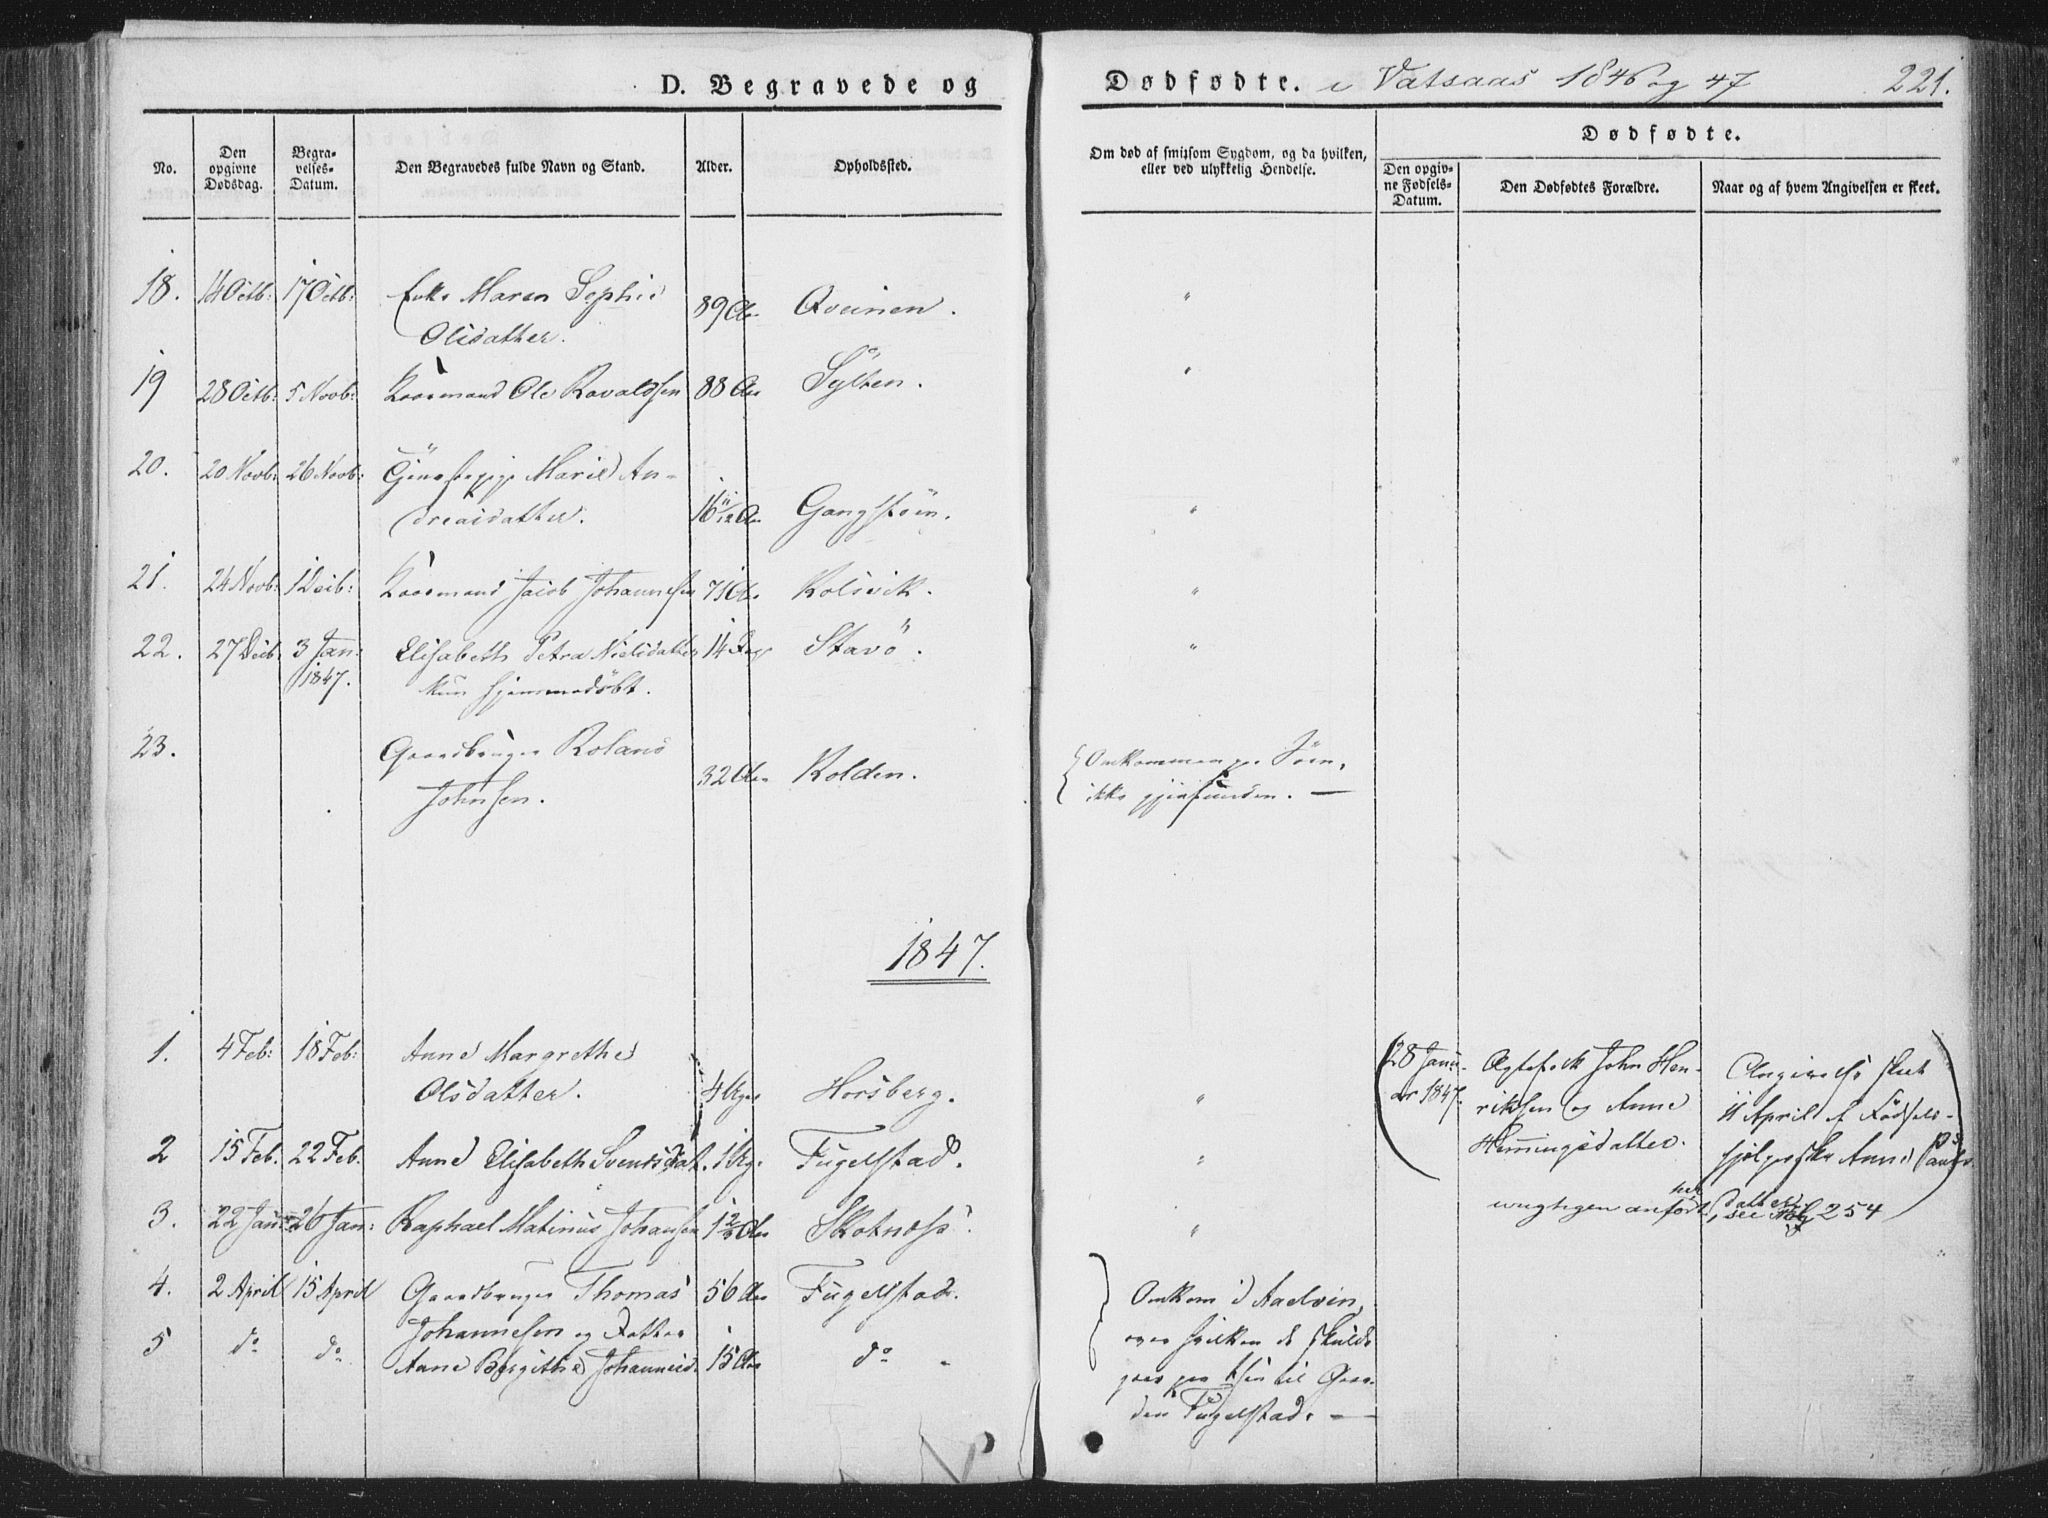 D. Begravede og Dødfødte. i Vatsaas 1846 og 47 221.
No.
Den opgivne Dødsdag.
Begravelses-Datum.
Den Begravedes fulde Navn og Stand.
Alder.
Opholdssted.
Om død af smitsom Sygdom, og da hvilken,
eller ved ulykkelig Hendelse.
Dødfødte.
Den opgivne Fødsels-Datum.
Den Dødfødtes Forældre.
Naar og af hvem Angivelsen er skeet.
18. 14 Octb: 17 Octb: Enke Maren Sophie
Olisdatter. 89 Aar Qveinen. "
19 28 Octb: 5 Novb: Kaarmand Ole Ravaldsen 88 Aar Sylten. "
20. 20 Novb: 26 Novb: Tjenestepige Marie An-
dreasdatter. 16 11/12 Aar Gangstøen. "
21. 24 Novb: 1 Decb: Kaarmand Jacob Johannesen 71 Aar Kolsvik. "
22. 27 Decb: 3 Jan: Elisabeth Petra Nielsdatter 14 Dage Stavø. "
1847. kun hjemmedøbt.
23. Gaardbruger Roland
Johnsen. 32 Aar Kolden. Omkommen paa Søen,
ikke gjenfunden. —
1847.
1. 4 Feb: 18 Feb: Anne Margrethe
Olsdatter. 4 Uger Horsberg. "
28 Janu-
ar 1847.
Ægtefolk John Hen-
riksen og Anne
Hemmingsdatter.
Angivelse skeet
11 April af Fødsels-
hjelperske Anne Pauls-
datter
urigtigen anført her, see Pag 254
2 15 Feb: 22 Feb. Anne Elisabeth Svendsdat. 1 Ug. Fugelstad. "
3. 22 Janu: 26 Jan: Raphael Matinus Johansen 1 2/3 Aar Skotnes. "
4. 2 April 15 April Gaardbruger Thomas 56 Aar Fugelstad.
Johannesen og Datter
5 do do Anne Bergithe Johannesd. 15 Aar do
Omkom i Aaelven,
over hvilken de skulde
gaae paa Isen til Gaar-
den Fugelstad. —